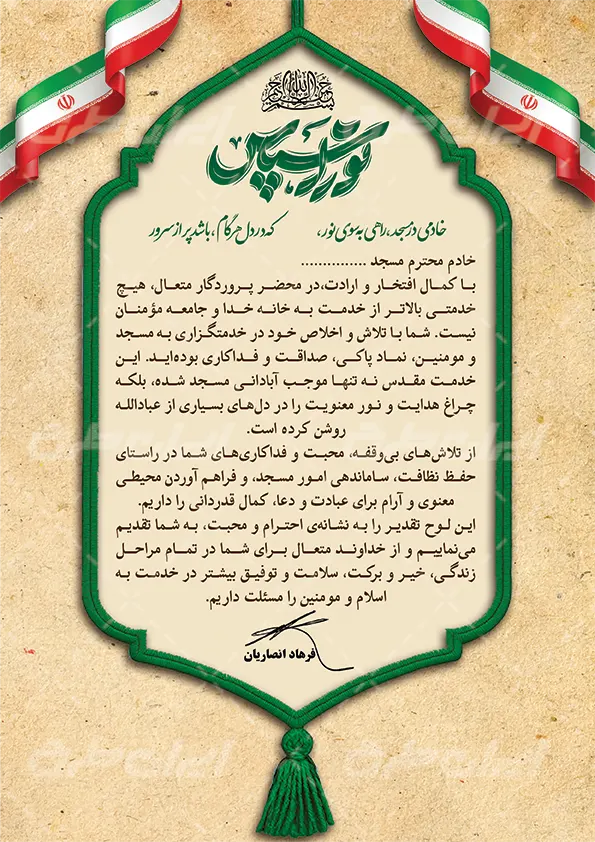 بسم الله الرحمن الرحیم
تو را سپاس
خادمی در مسجد، راهی به سوی نور، که در دل هر گام، باشد پر از سرور
خادم محترم مسجد ...............
با کمال افتخار و ارادت،در محضر پروردگار متعال، هیچ
خدمتی بالاتر از خدمت به خانه خدا و جامعه مؤمنان
نیست. شما با تلاش و اخلاص خود در خدمتگزاری به مسجد
و مومنین، نماد پاکی، صداقت و فداکاری بوده‌اید. این
خدمت مقدس نه تنها موجب آبادانی مسجد شده، بلکه
چراغ هدایت و نور معنویت را در دل‌های بسیاری از عبادالله
روشن کرده است.
از تلاش‌های بی‌وقفه، محبت و فداکاری‌های شما در راستای
حفظ نظافت، ساماندهی امور مسجد، و فراهم آوردن محیطی
معنوی و آرام برای عبادت و دعا، کمال قدردانی را داریم.
این لوح تقدیر را به نشانه‌ی احترام و محبت، به شما تقدیم
می‌نماییم و از خداوند متعال برای شما در تمام مراحل
زندگی، خیر و برکت، سلامت و توفیق بیشتر در خدمت به
اسلام و مومنین را مسئلت داریم.
فرهاد انصاریان
ایران طرح